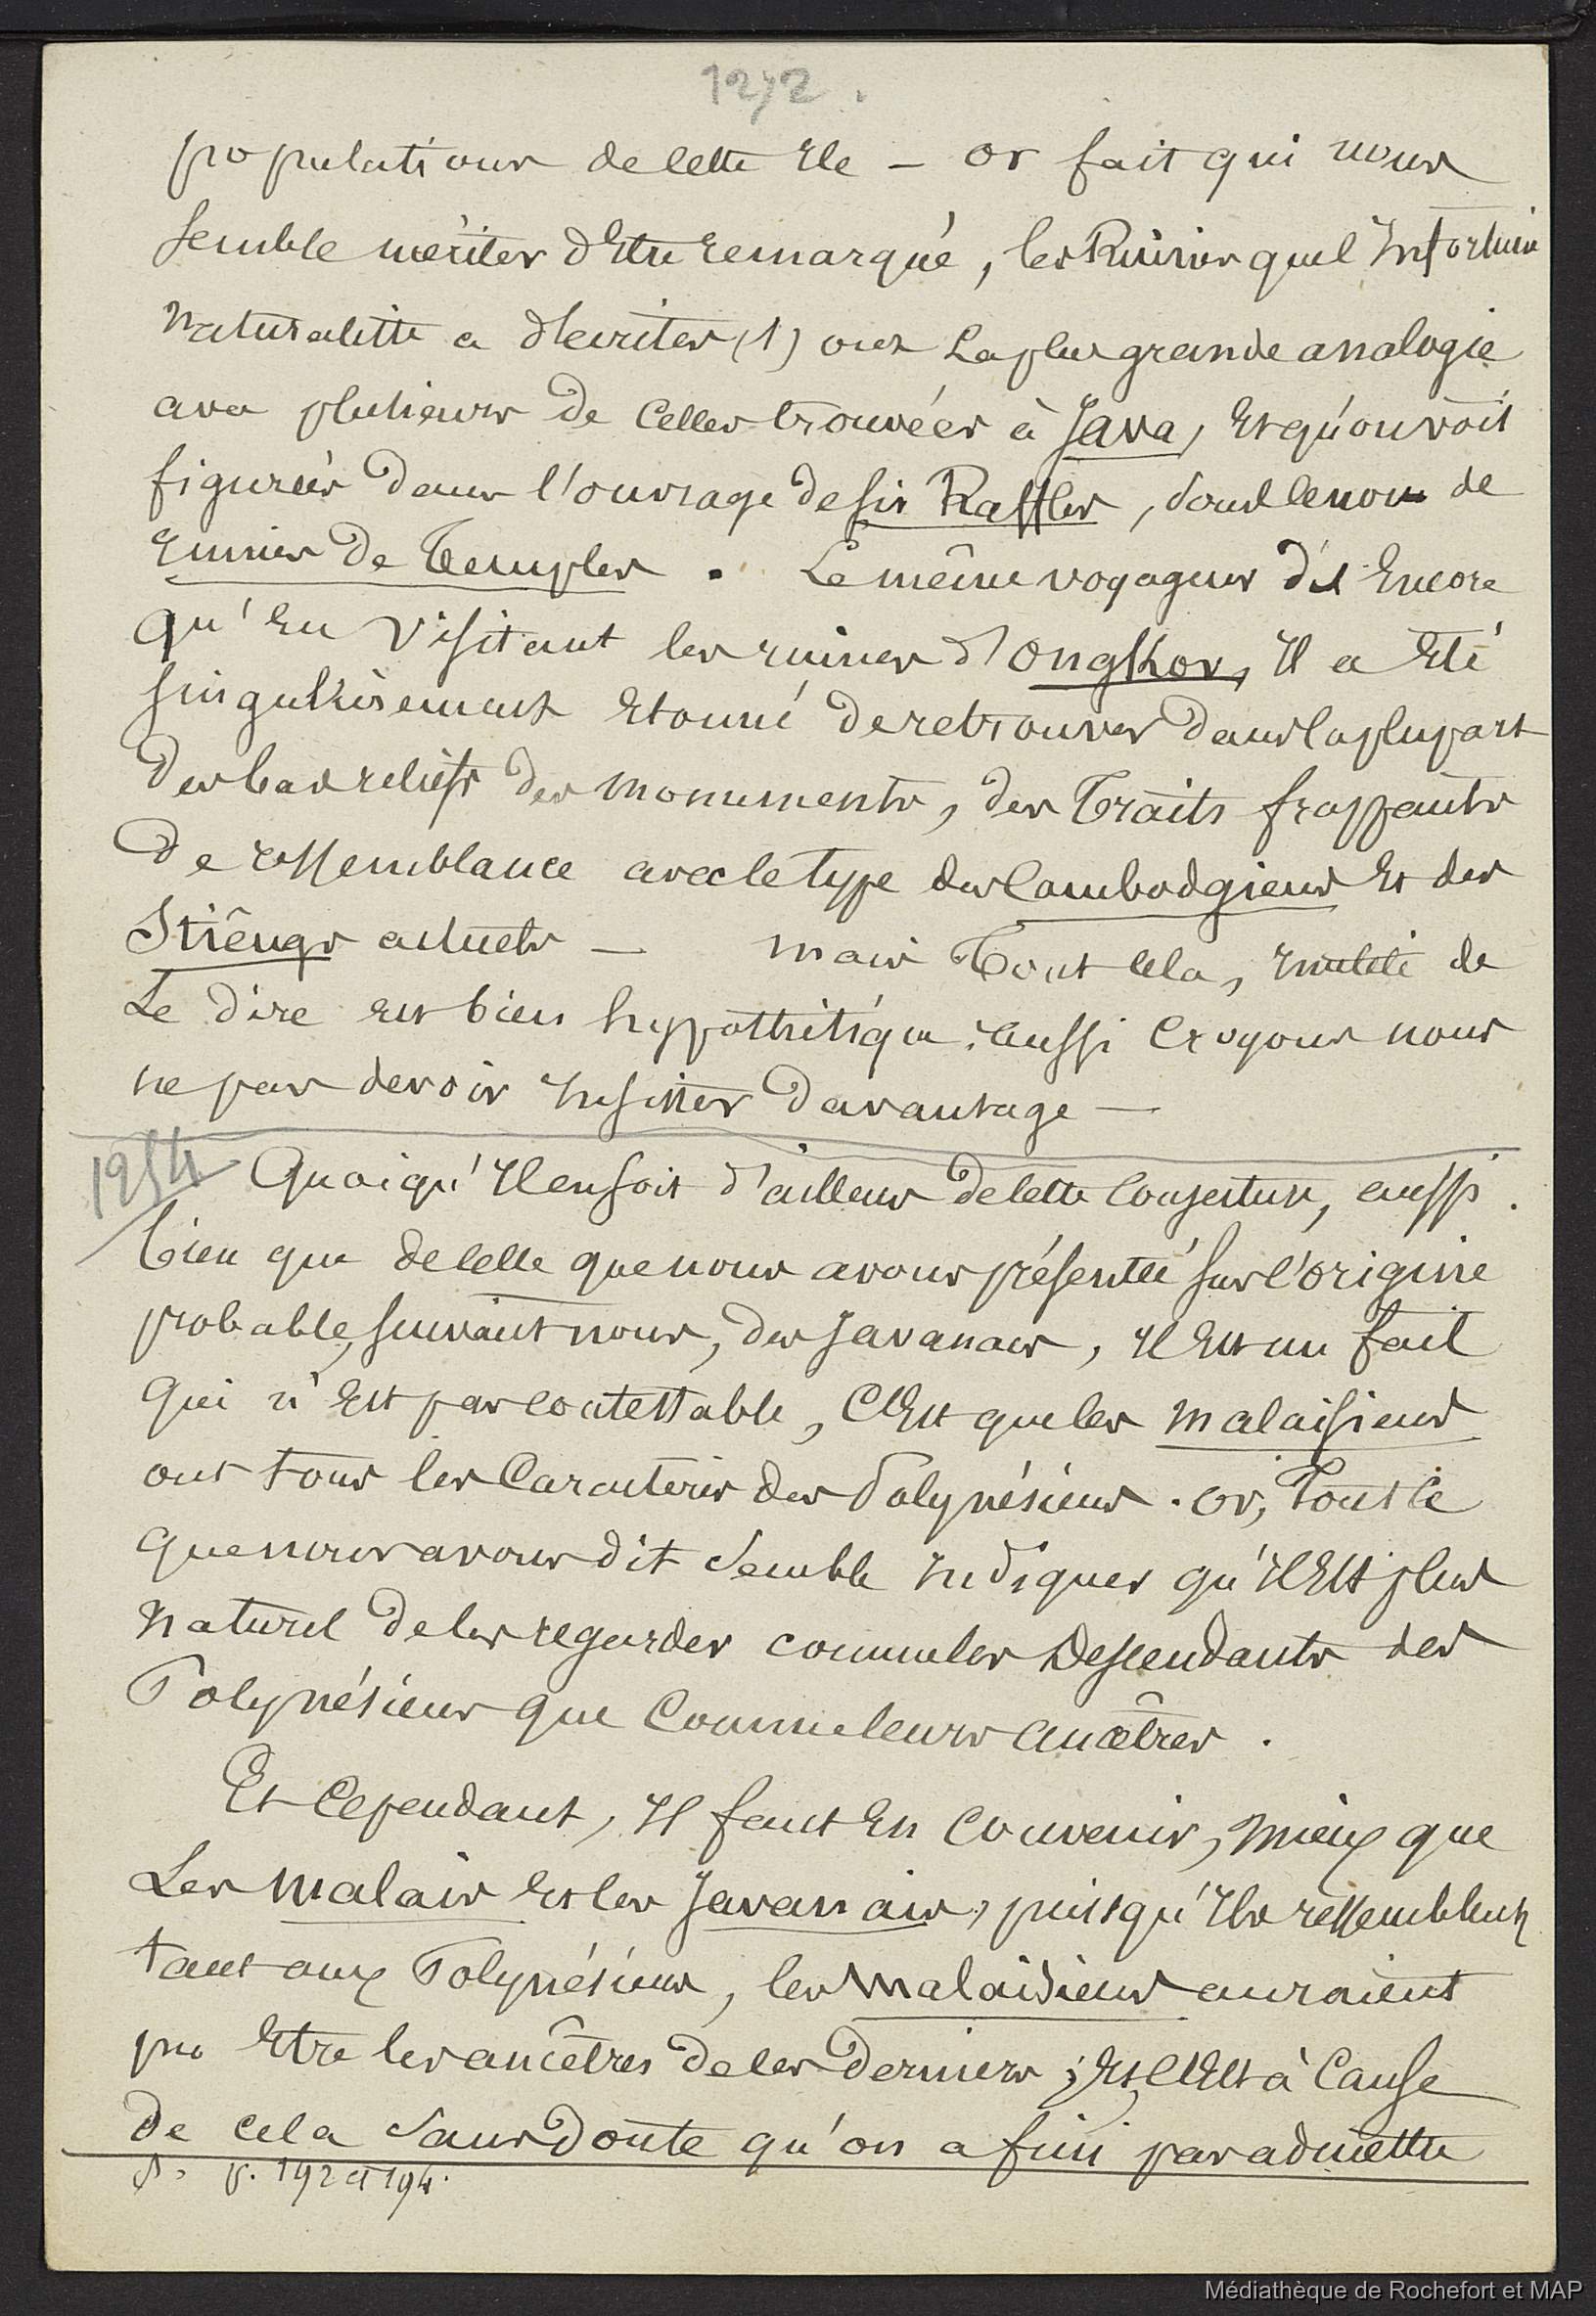 1272.
populations de cette ile — or fait qui nous
semble mériter d'être remarqué, les Ruines que l'infortuné
naturaliste a décrites (1) ont la plus grande analogie
avec plusieurs de celles trouvées à Java, et qu'on voit
figurées dans l'ouvrage de sir Raffles, sous le nom de
ruines de Temples. Le même voyageur dit encore
qu'en visitant les ruines d'Ongkor, il a été
singulièrement étonné de retrouver dans la plupart
des bas reliefs des monuments, des traits frappants
de ressemblance avec le type des Cambodgiens et des
Stiêngs actuels — mais tout cela, inutile de
le dire est bien hypothétique : aussi croyons nous
ne pas devoir insister davantage —
1254 Quoiqu'il en soit d'ailleurs de cette conjecture, aussi
bien que de celle que nous avons présentée sur l'origine
probable, suivant nous, des Javanais, il est un fait
qui n'est pas contestable, c'est que les malaisiens
ont tous les caractères des Polynésiens. or, tout ce
que nous avons dit semble indiquer qu'il est plus
naturel de les regarder comme les descendants des
Polynésiens que comme leurs ancêtres.
Et cependant, il faut en convenir, mieux que
les malais et les Javanais, puisqu'ils ressemblent
tant aux Polynésiens, les malaisiens auraient
pu être les ancêtres de ces derniers ; et c'est à cause
de cela sans doute qu'on a fini par admettre
p. 192 et 194.
Médiathèque de Rochefort et MAP